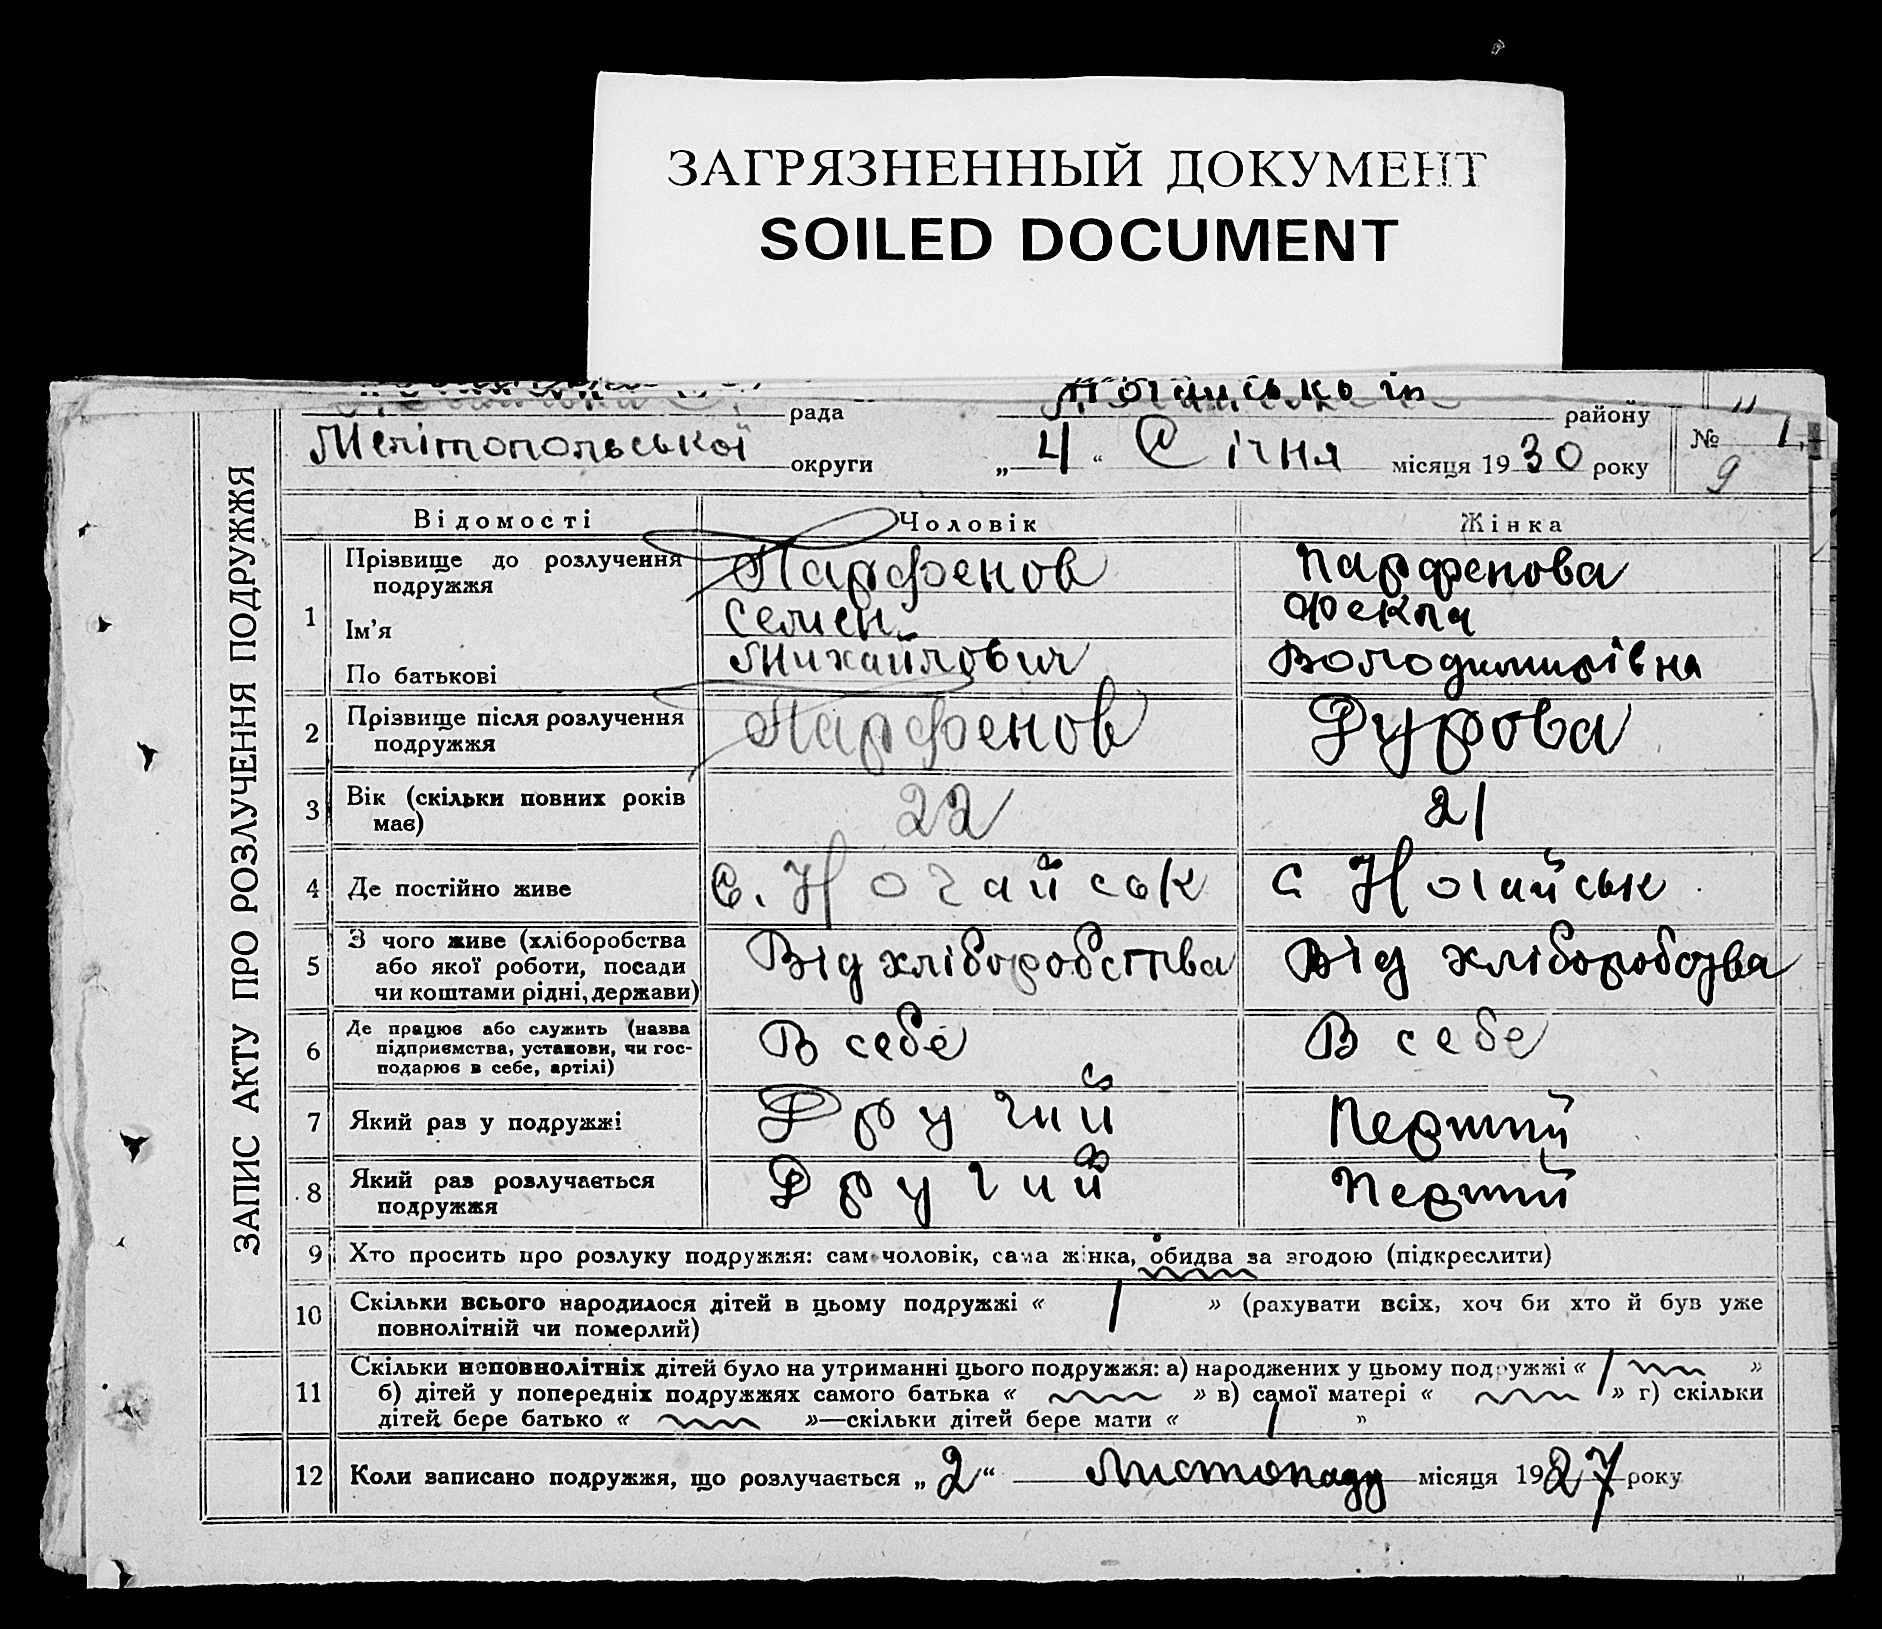 ЗАГРЯЗНЕННЫЙ ДОКУМЕНТ
SOILED DOCUMENT
рада району
Мелітопольської округи „4“ Січня місяця 1930 року № 1.
9
ЗАПИС АКТУ ПРО РОЗЛУЧЕННЯ ПОДРУЖЖЯ
Відомості Чоловік Жінка
1 Прізвище до розлучення Парфенов Парфенова
подружжя
Ім'я Семен Фекла
По батькові Михайлович Володимирівна
2 Прізвище після розлучення Парфенов Дурова
подружжя
3 Вік (скільки повних років 22 21
має)
4 Де постійно живе с. Ногайськ с Ногайськ
5 З чого живе (хліборобства Від хліборобства Від хліборобства
або якої роботи, посади
чи коштами рідні, держави)
6 Де працює або служить (назва В себе В себе
підприємства, установи, чи гос-
подарює в себе, артілі)
7 Який раз у подружжі Другий Перший
8 Який раз розлучається Другий Перший
подружжя
9 Хто просить про розлуку подружжя: сам чоловік, сама жінка, обидва за згодою (підкреслити)
10 Скільки всього народилося дітей в цьому подружжі « 1 » (рахувати всіх, хоч би хто й був уже
повнолітній чи померлий)
11 Скільки неповнолітніх дітей було на утриманні цього подружжя: а) народжених у цьому подружжі « 1 »
б) дітей у попередніх подружжях самого батька « » в) самої матері « » г) скільки
дітей бере батько « »—скільки дітей бере мати « 1 »
12 Коли записано подружжя, що розлучається „2“ Листопаду місяця 1927 року